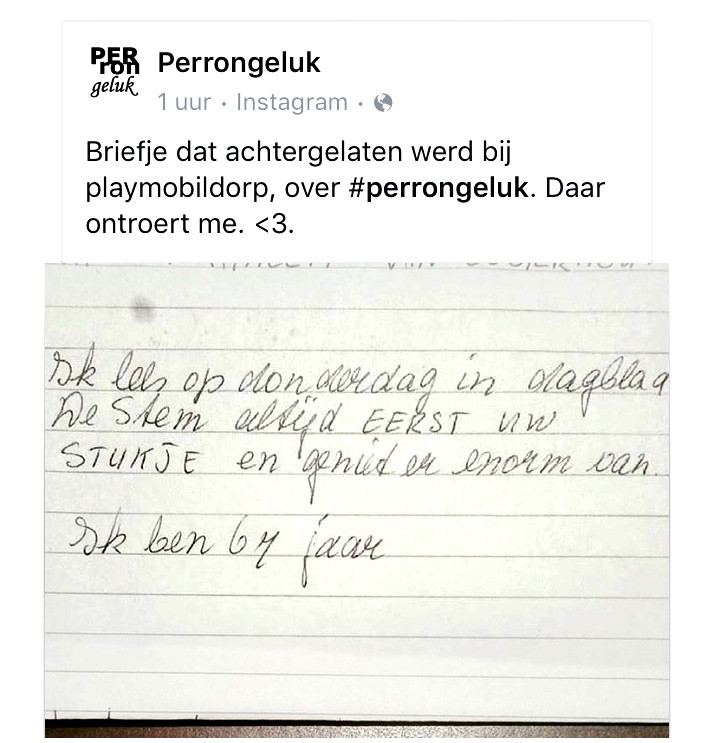 PER
ron
geluk
Perrongeluk
1 uur · Instagram ·
Briefje dat achtergelaten werd bij
playmobildorp, over #perrongeluk. Daar
ontroert me. <3.
Ik lees op donderdag in dagblad
De Stem altijd EERST UW
STUKJE en geniet er enorm van.
Ik ben 67 jaar